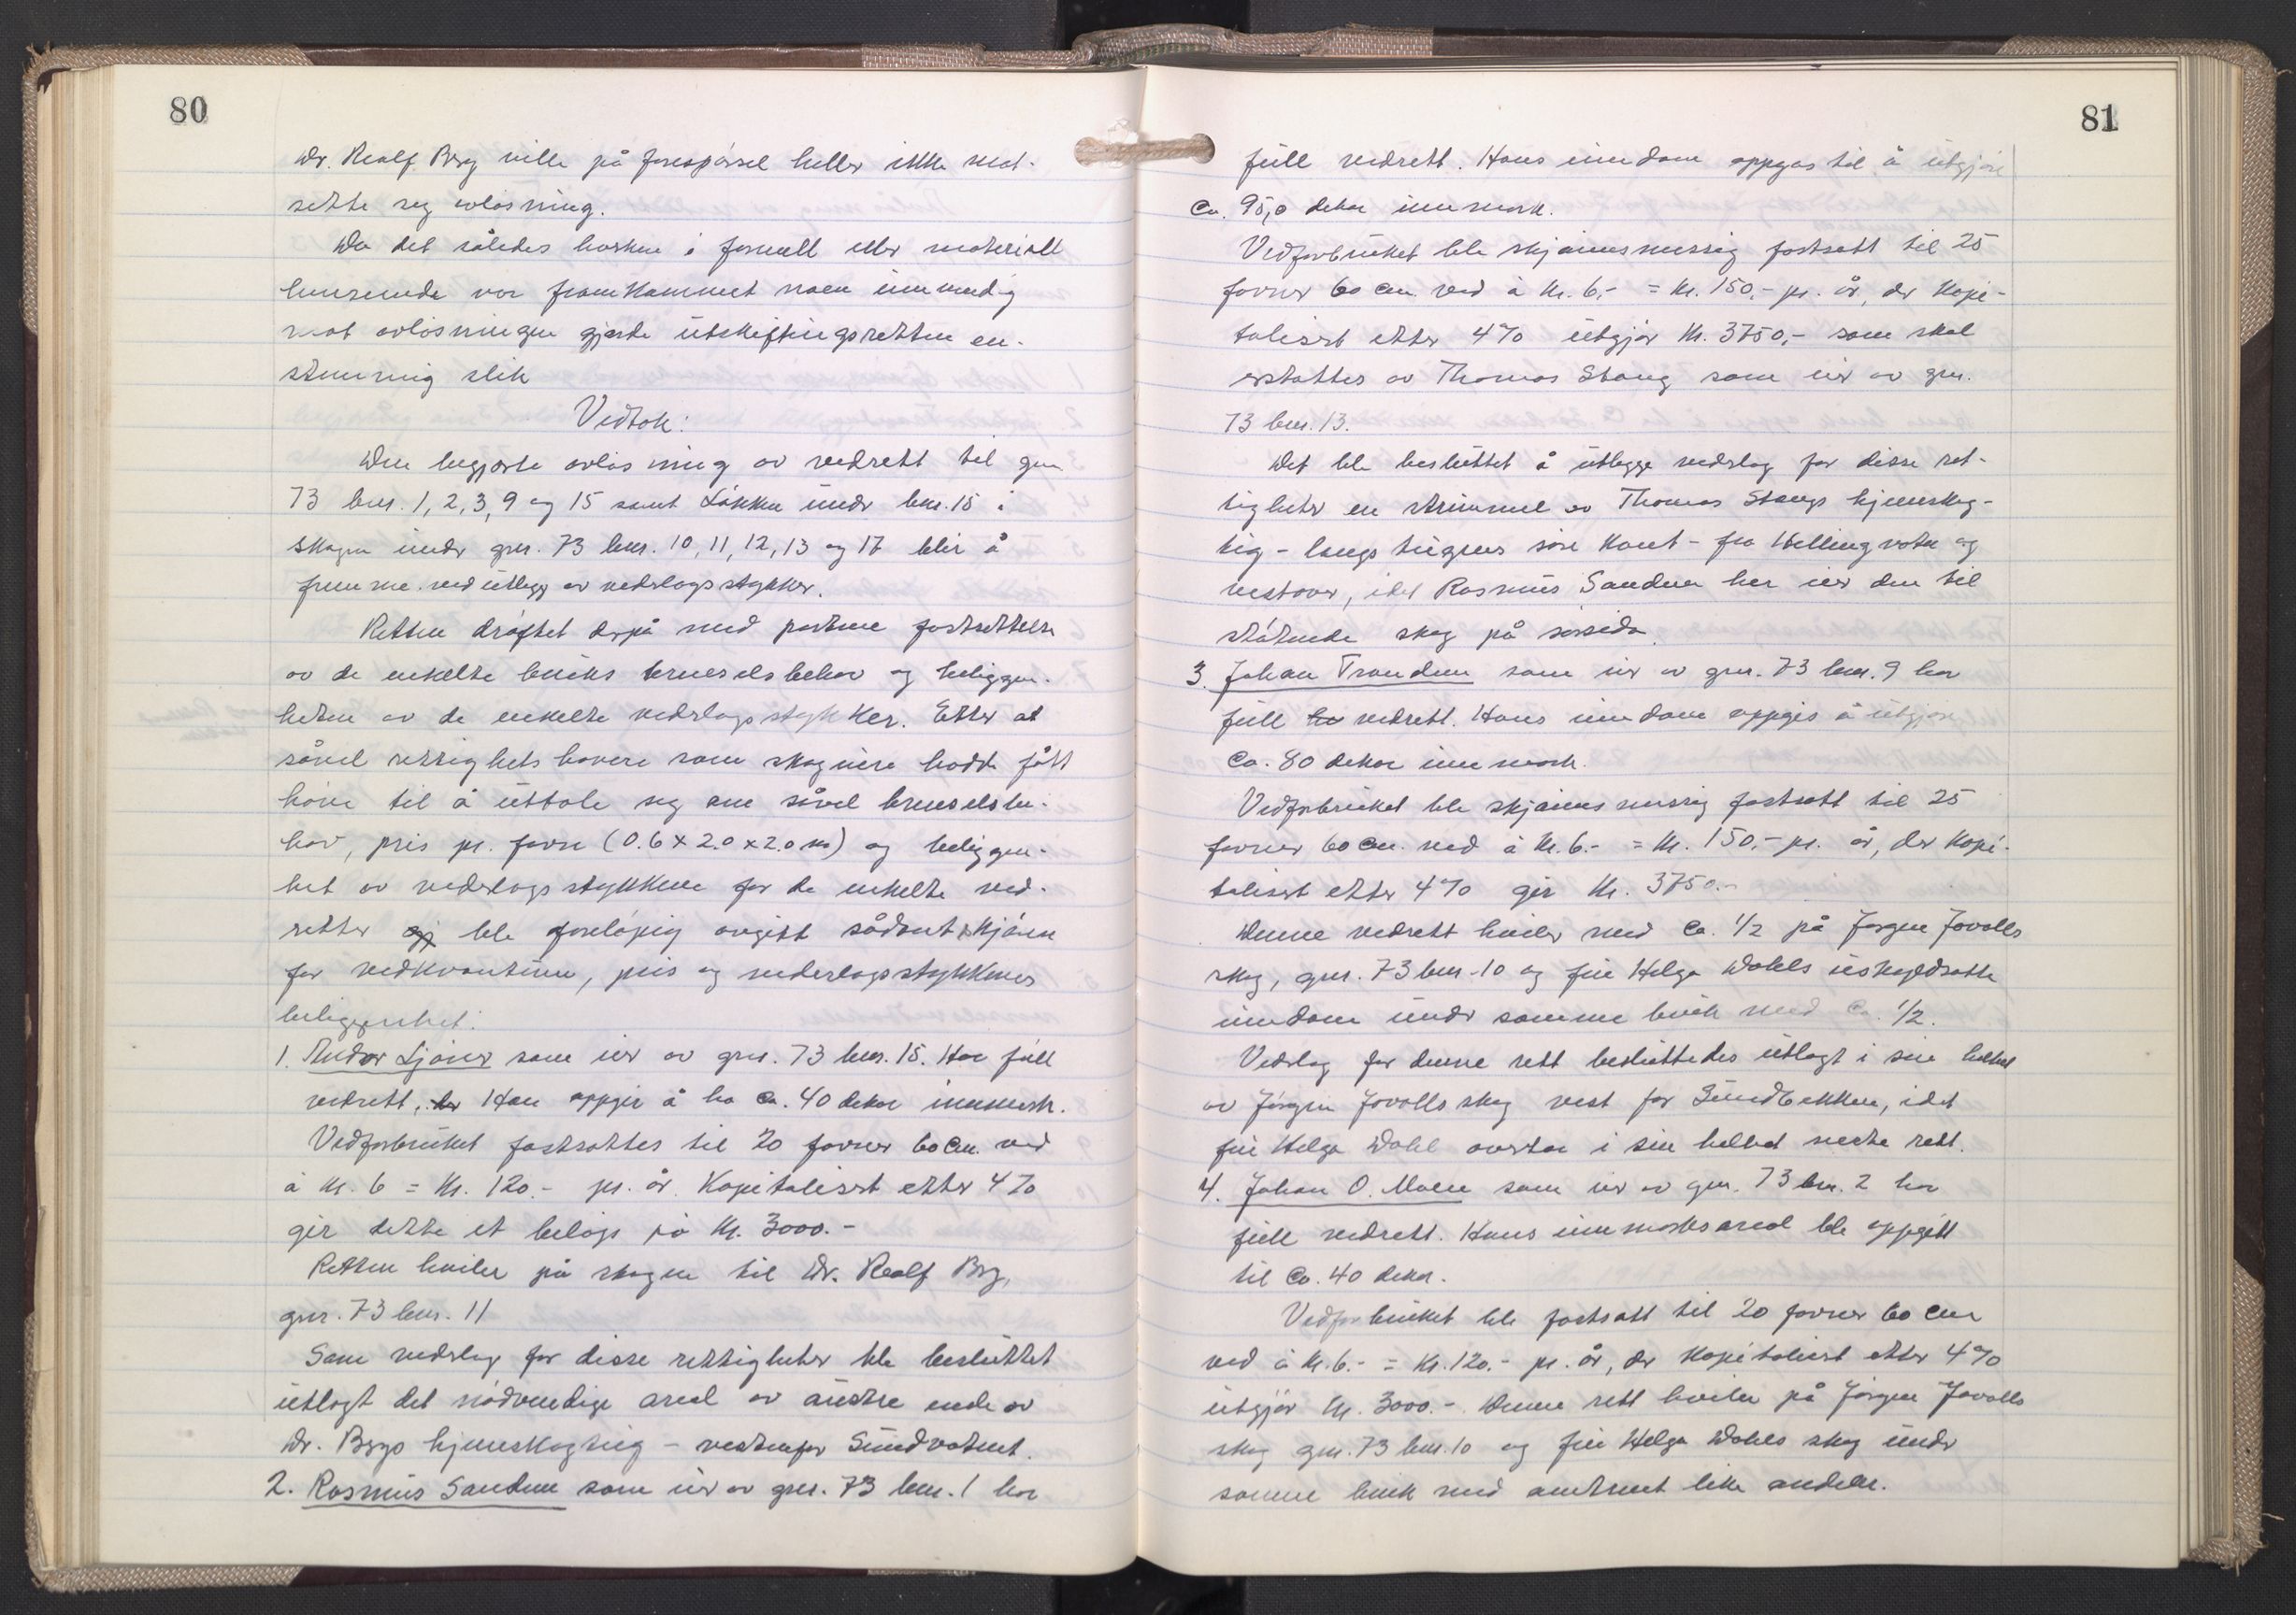 80
Dr. Realf Berg ville på forespørsel heller ikke mot-
sette seg avløsning.
Da det således hverken i formell eller materiell
henseende var framkommet noen innvending
mot avløsningen gjorde utskiftingsretten en-
stemmig slik
Vedtak:
Den begjærte avløsning av vedrett til gnr.
73 bnr. 1, 2, 3, 9 og 15 samt Løkken under bnr. 15 i
skogen under gnr. 73 bnr. 10, 11, 12, 13 og 17 blir å
fremme ved utlegg av vederlagsstykker.
Retten drøftet derpå med partene fastsettelse
av de enkelte bruks brenselsbehov og beliggen-
heten av de enkelte vederlagsstykker. Etter at
såvel rettighetshavere som skogeiere hadde fått
høve til å uttale seg om såvel brenselsbe-
hov, pris pr. favn (0.6 x 2.0 x 2.0 m) og beliggen-
het av vederlagsstykkene for de enkelte ved-
retter og ble foreløpig avgitt sådant skjønn
for vedkvantum, pris og vederlagsstykkenes
beliggenhet:
1. Andor Ljøner som eier av gnr. 73 bnr. 15. Har full
vedrett, der Han oppgir å ha ca. 40 dekar innmark.
Vedforbruket fastsattes til 20 favner 60 cm. ved
à kr. 6 = kr. 120.- pr. år. Kapitalisert etter 4%
gir dette et beløp på kr. 3000.-
Retten hviler på skogen til Dr. Realf Berg,
gnr. 73 bnr. 11
Som vederlag for disse rettigheter ble besluttet
utlagt det nødvendige areal av austre ende av
Dr. Bergs hjemskogteig - vestenfor Sundvatnet.
2. Rasmus Sandnes som eier av gnr. 73 bnr. 1 har
81
full vedrett. Hans eiendom oppgas til å utgjøre
ca. 95,0 dekar innmark.
Vedforbruket ble skjønnsmessig fastsatt til 25
favner 60 cm. ved à kr. 6,- = kr. 150,- pr. år, der kapi-
talisert etter 4% utgjør kr. 3750,- som skal
erstattes av Thomas Stang som eier av gnr.
73 bnr. 13.
Det ble besluttet å utlegge vederlag for disse ret-
tigheter en strimmel av Thomas Stangs hjemskog-
teig - langs teigens søre kant - fra Hellingvatn og
vestover, idet Rasmus Sandnes her eier den til
støtende skog på sørsida.
3. Johan Trondnes som eier av gnr. 73 bnr. 9 har
full ha vedrett. Hans eiendom oppgis å utgjøre
ca. 80 dekar innmark.
Vedforbruket ble skjønnsmessig fastsatt til 25
favner 60 cm. ved à kr. 6.- = kr. 150,- pr. år, der kapi-
talisert etter 4% gir kr. 3750.-
Denne vedrett hviler med ca. 1/2 på Jørgen Jovolls
skog, gnr. 73 bnr. 10 og fru Helga Dahls uskyldsatte
eiendom under samme bruk med ca. 1/2.
Vederlag for denne rett besluttedes utlagt i sin helhet
av Jørgen Jovolls skog vest for Sundbekken, idet
fru Helga Dahl overtar i sin helhet neste rett.
4. Johan O. Moen som eier av gnr. 73 bnr. 2 har
full vedrett. Hans innmarksareal ble oppgitt
til ca. 40 dekar.
Vedforbruket ble fastsatt til 20 favner 60 cm
ved à kr. 6.- = kr. 120.- pr. år, der kapitalisert etter 4%
utgjør kr. 3000.- Denne rett hviler på Jørgen Jovolls
skog gnr. 73 bnr. 10 og fru Helga Dahls skog under
samme bruk med omtrent like andeler.